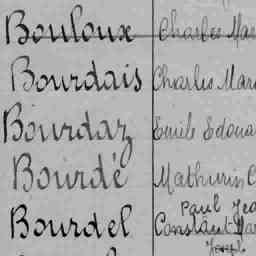 Bouloux Charles Mar
Bourdais Charles Mar
Bourdaz Emile Edoua
Bourdé Mathurin C
Paul Jea
Bourdel Constant Mar
Joseph